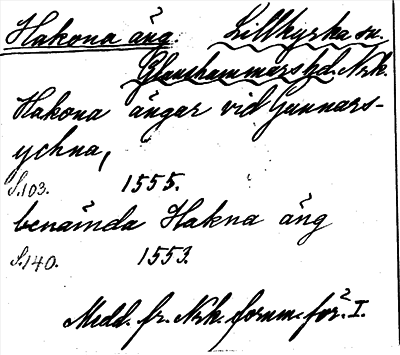 Hakona äng. Lillkyrka sn.
Glanshammars hd. Nrk.
Hakona ängar vid Gunnars-
ychna,
S.103. 1555.
benämda Hakna äng
S.140. 1553.
Medd. fr. Nrk. fornm. för. 2 I.